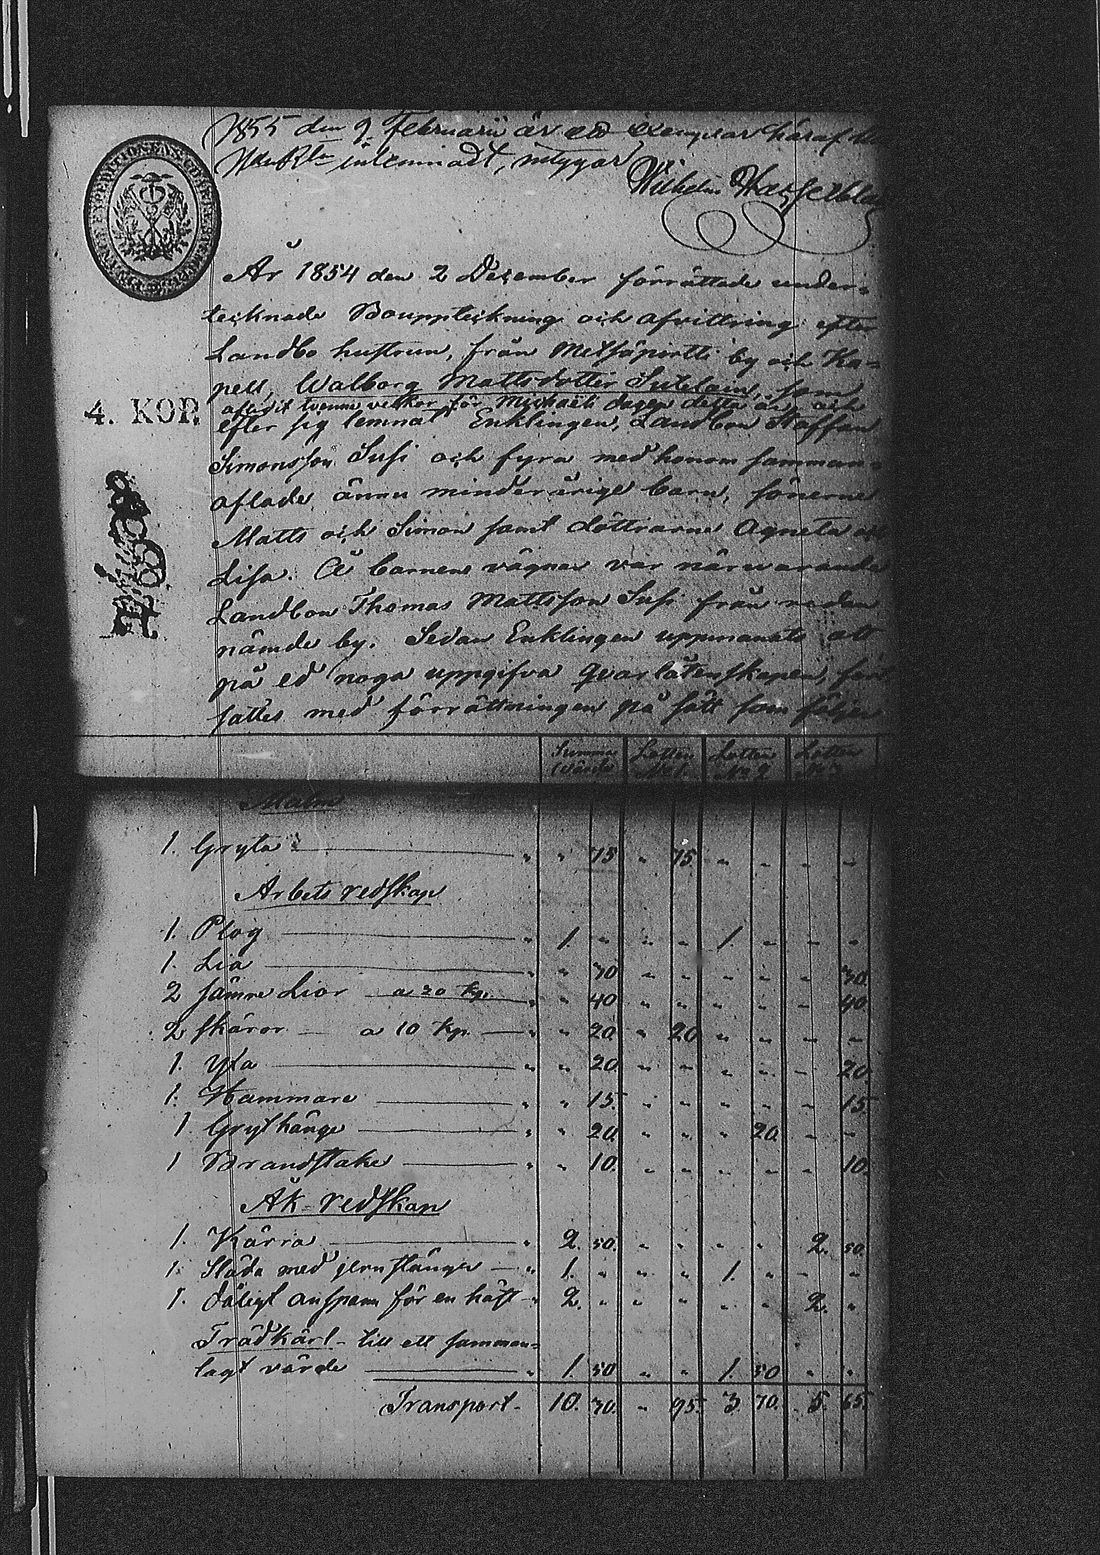 1855 den 9 Februarii är ett exemplar häraf
inlemnadt, intygar
Wilhelm Hasselblatt
År 1854 den 2 December förrättade under-
tecknade Bouppteckning och afvittring efter
Landbo hustrun, från Metsäpirtti by och Ka-
pell, Walborg Mattsdotter Sutelain, som
aflidit tvenne veckor för Michaeli dagen detta år, och
efter sig lemnat Enklingen, Landbon Staffan
4. KOP.
Simonsson Susi och fyra med honom samman-
aflade, ännu minderårige barn, sönerne
Matts och Simon samt döttrarne Agneta och
Lisa. Å barnens vägnar var närvarande
Landbon Thomas Mattsson Susi från redan
nämde by. Sedan Enklingen uppmanats att
på ed noga uppgifva qvarlåtenskapen, fort
sattes med förrättningen på sätt som följer
Summa Värde Lotten No 1. Lotten No 2 Lotten No 3
Malm
1. Gryta " " 75 " 75. " " " "
Arbets redskap
1. Plog " 1. " " " 1. " " "
1. Lia " " 30 " " " " " 30.
2 sämre Lior a 20 kp. " " 40 " " " " " 40.
2 skäror a 10 kp. " " 20 " 20 " " " "
1. Yxa " " 20 " " " " " 20.
1. Hammare " " 15. " " " " " 15.
1 Grythänge " " 20 " " " 20. " "
1 Brandstake " " 10. " " " " " 10.
Åk-redskap
1. Kärra " 2. 50. " " " " 2. 50.
1. Släda med jernstänger " 1. " " " 1. " " "
1. Dåligt anspann för en häst " 2. " " " " " 2. "
Trädkärl till ett samman-
lagt värde " 1. 50 " " 1. 50 " "
Transport 10. 30. " 95. 3. 70. 5. 65.